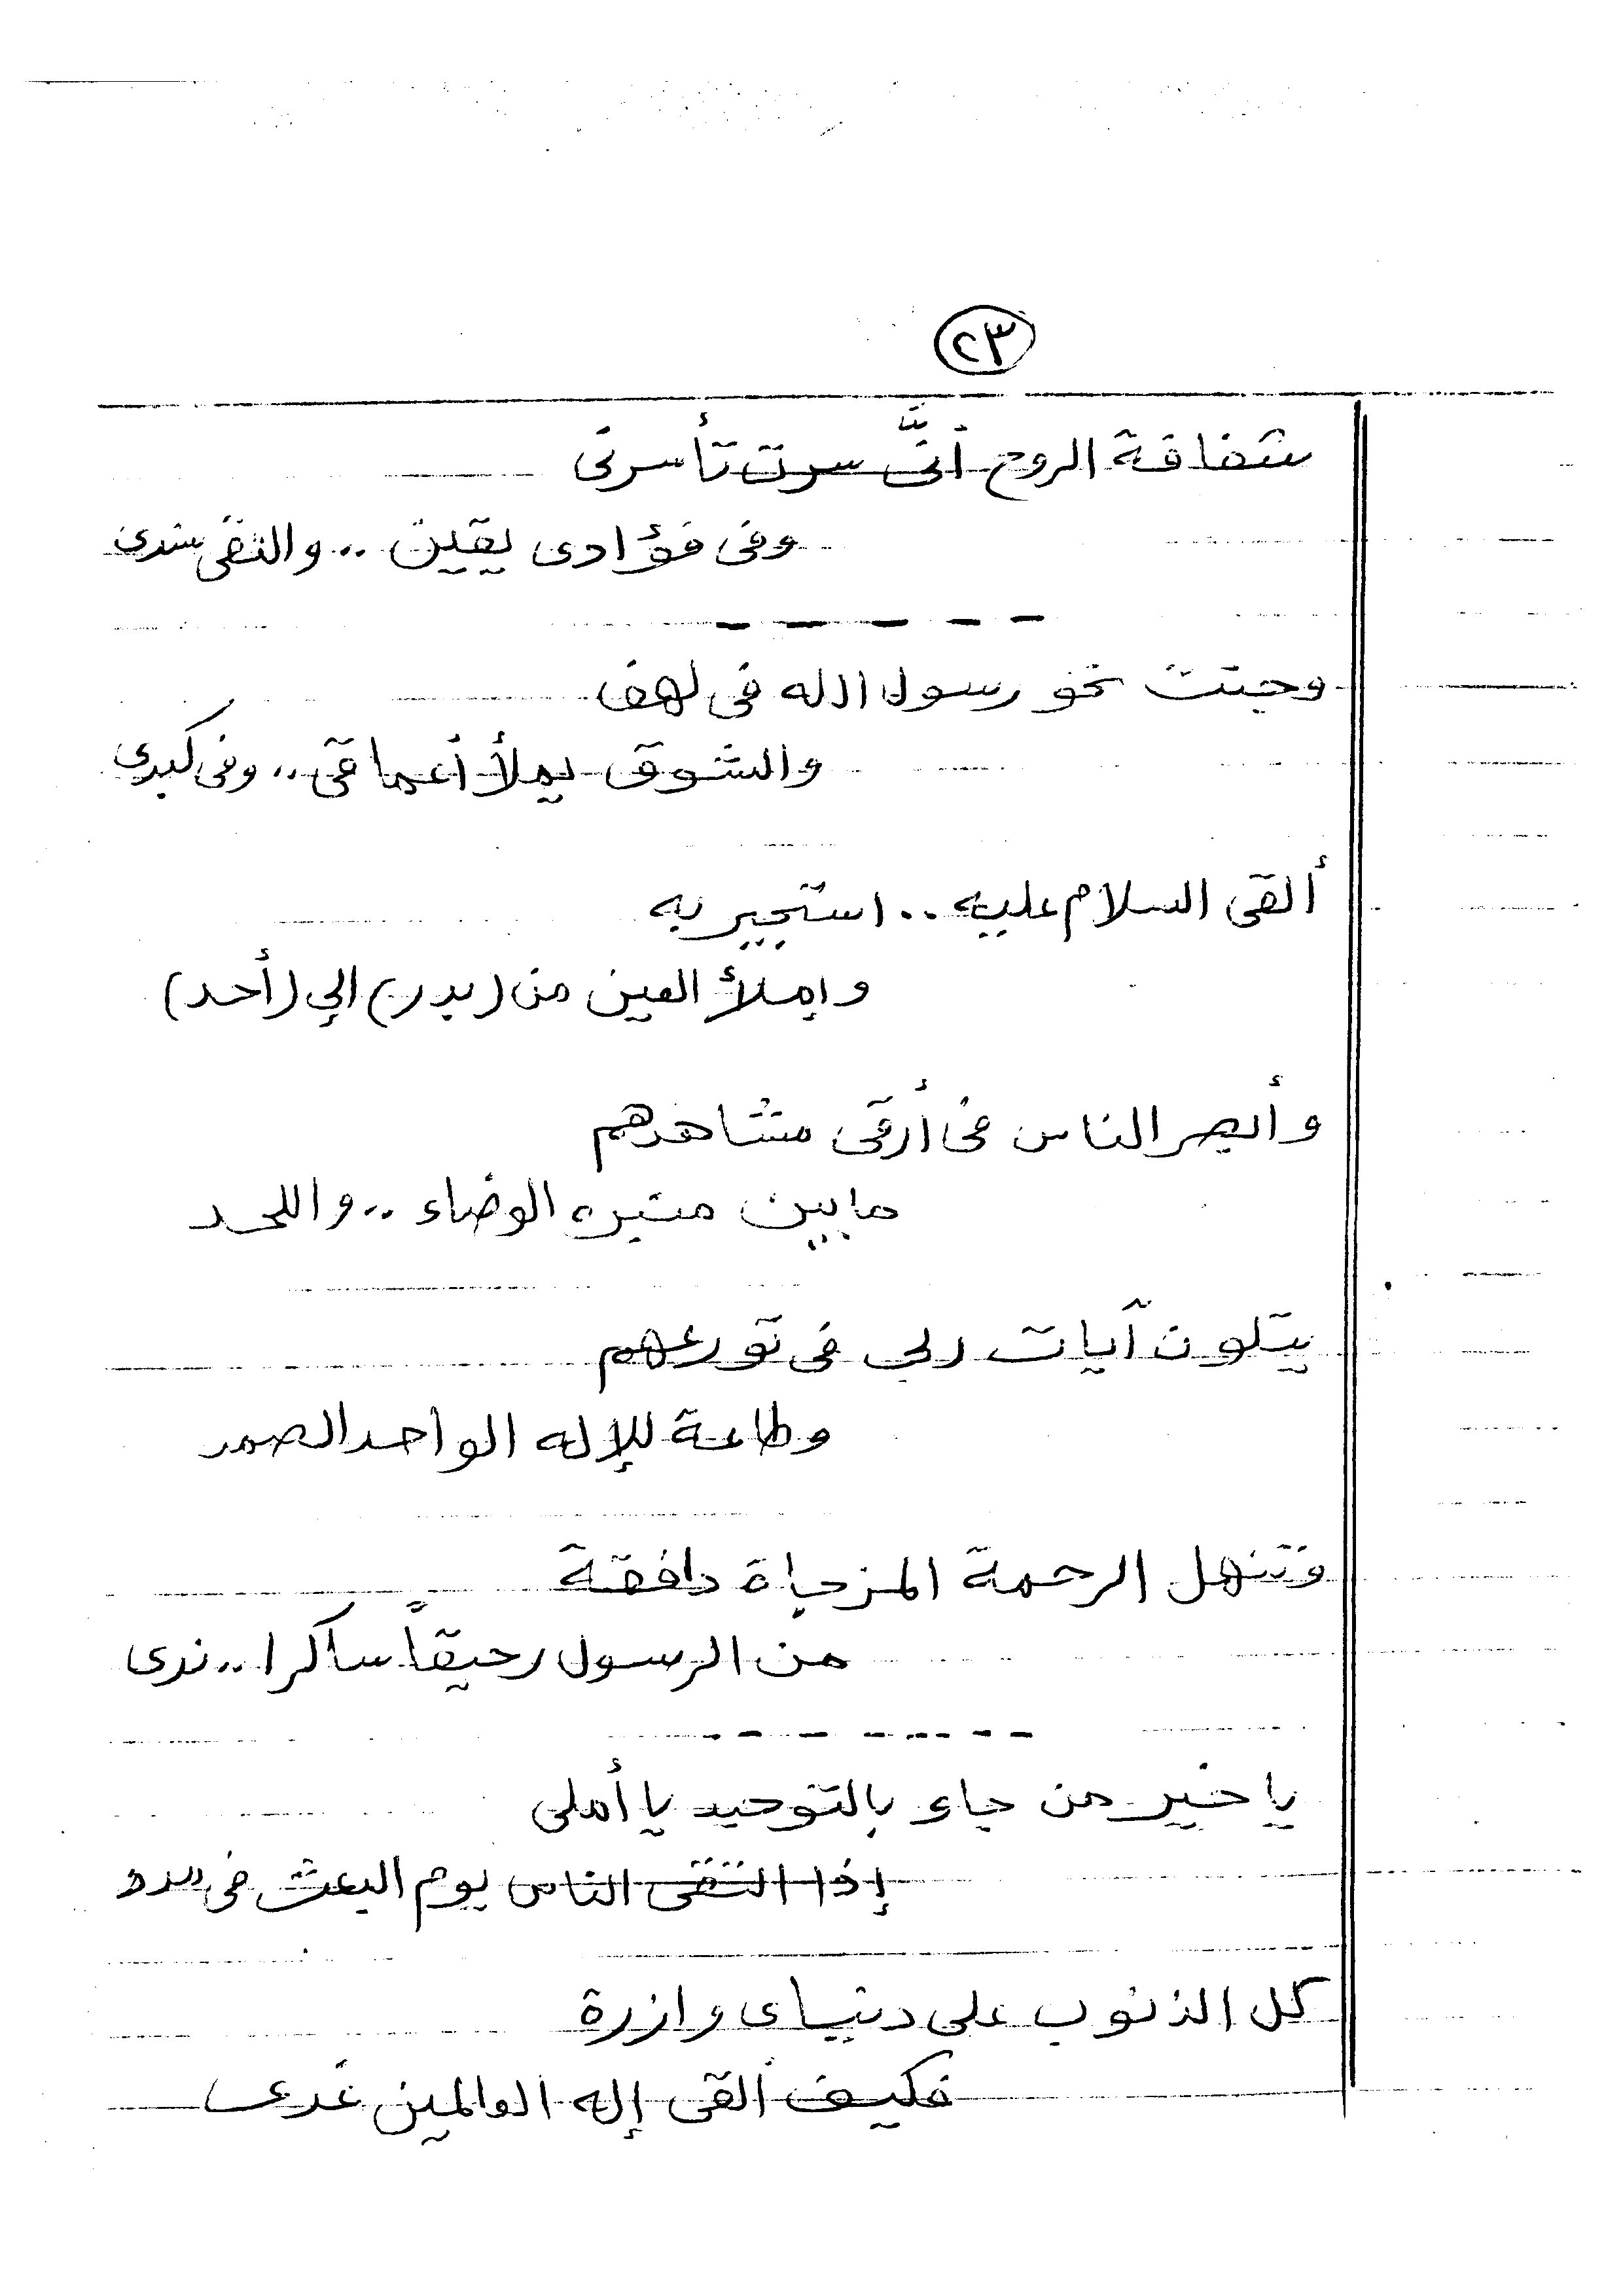 ٢٣
شفافة الروح أنَّى سرت تأسرنى
وفى فؤادى يقين .. والتقى سندى
وجئت نحو رسول الله فى لهف
والشوق يملأ أعماقى .. وفى كبدى
ألقى السلام عليه .. استجير به
وإملأ العين من (بدر) إلى (أحد)
وأبصر الناس فى أرقى مشاهدهم
ما بين منبره الوضاء .. واللحد
يتلون آيات ربى فى تورعهم
وطاعة للإله الواحد الصمد
وتنهل الرحمة المزجاة دافقة
من الرسول رحيقاً ساكرا .. ندى
يا خير من جاء بالتوحيد يا أملى
إذا التقى الناس يوم البعث فى
كل الذنوب على دنياى وازرة
فكيف ألقى إله العالمين غدى